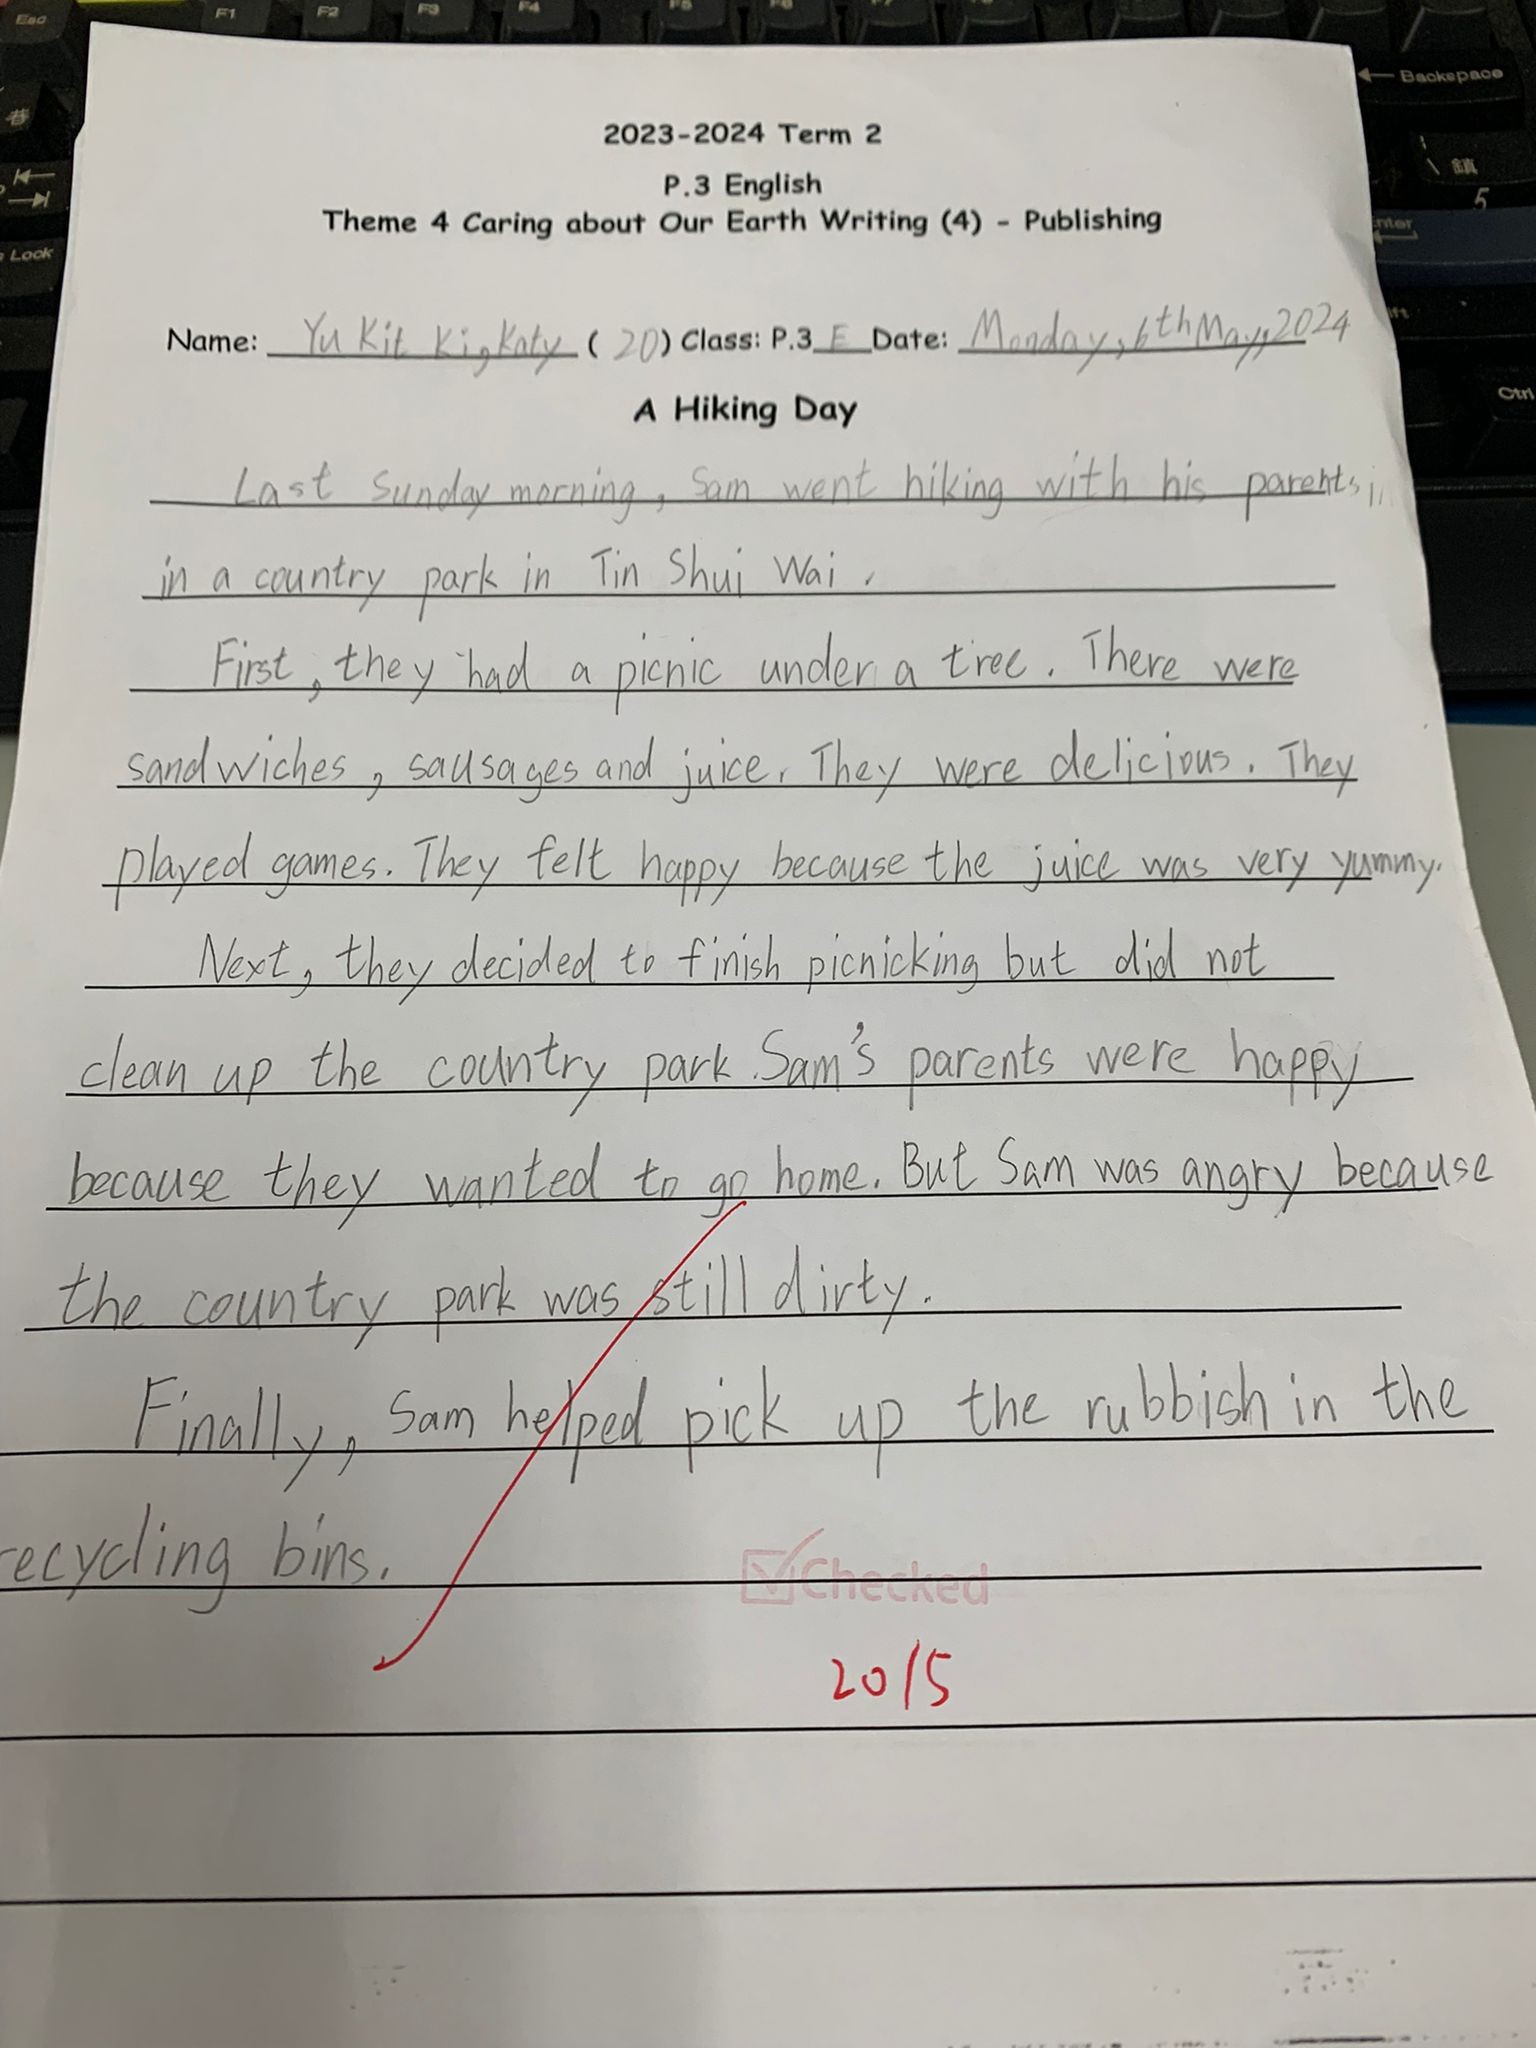 Esc F1 F2 F3 F4
Backspace
2023-2024 Term 2
P.3 English
Theme 4 Caring about Our Earth Writing (4) - Publishing
Name: Yu Kit Ki, Katy (20) Class: P.3 E Date: Monday, 6th May, 2024
A Hiking Day
Last Sunday morning, Sam went hiking with his parents
in a country park in Tin Shui Wai.
First, they had a picnic under a tree. There were
sandwiches, sausages and juice. They were delicious. They
played games. They felt happy because the juice was very yummy.
Next, they decided to finish picnicking but did not
clean up the country park. Sam's parents were happy
because they wanted to go home. But Sam was angry because
the country park was still dirty.
Finally, Sam helped pick up the rubbish in the
recycling bins.
Checked
20/5
Lock
Ctrl